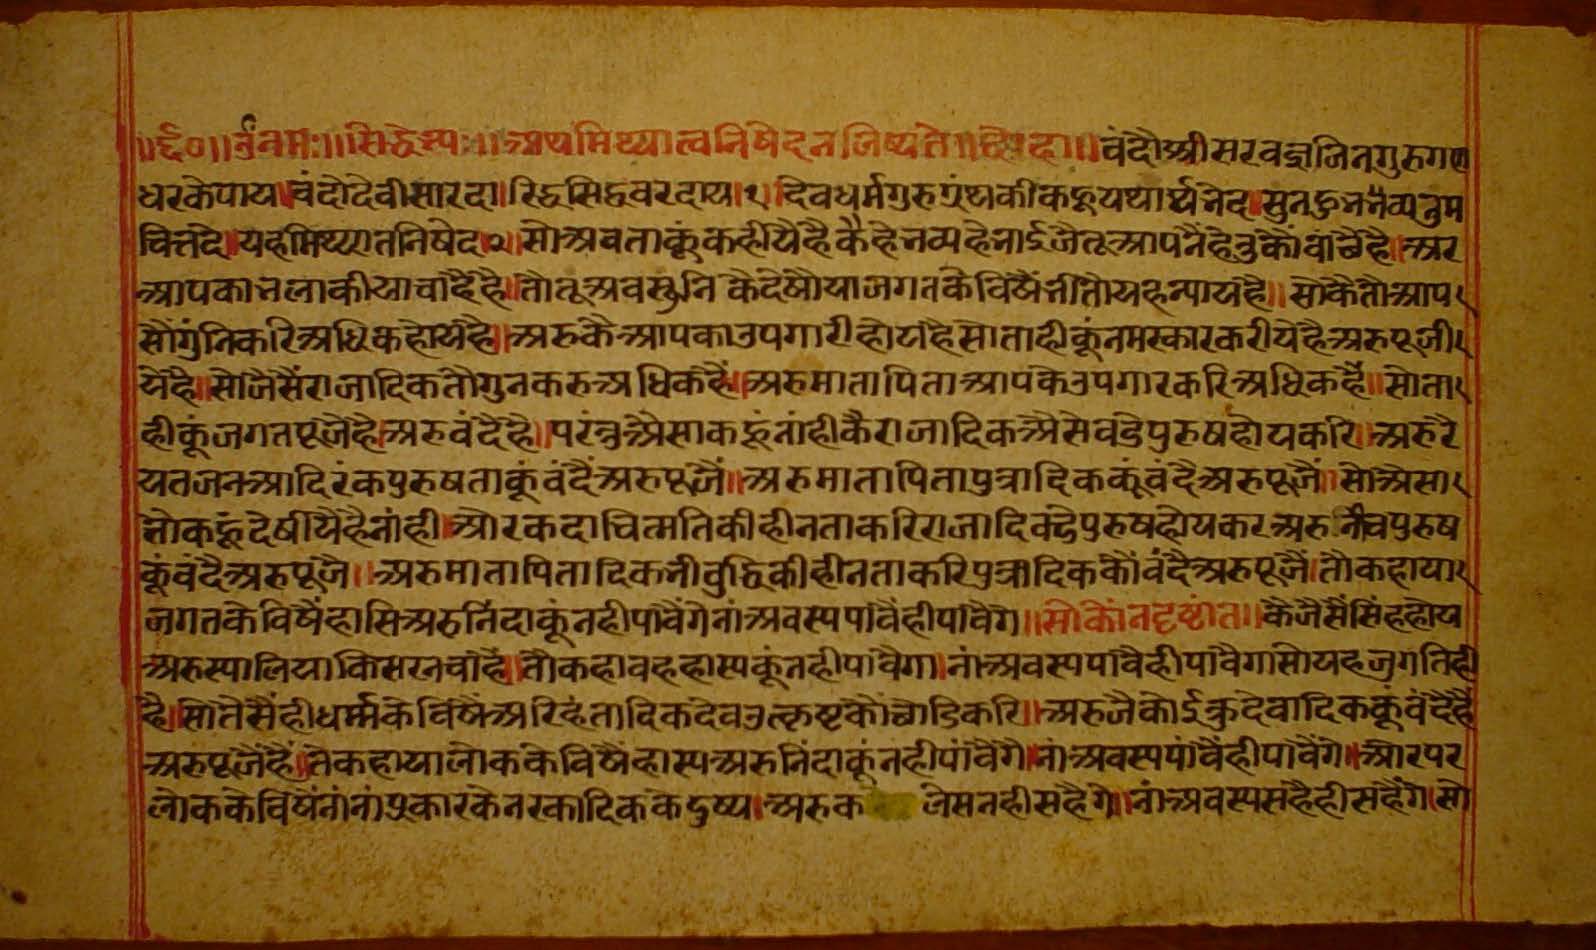 ॥६०॥ॐनमः॥सिद्धेभ्यः॥अथमिथ्यात्वनिषेदनलिष्यते॥दोहा॥वंदौश्रीसरवज्ञजिनगुरुगण
धरकेपाय।वंदोदेवीसारदा।रिद्धसिद्धवरदाय।१।देवधर्मगुरुग्रंथकीकहूयथार्थभेद।सुनहु
चित्तदे।यहमिथ्यातनिषेद२।सोअवताकूंकहीयैहैकैहेभव्यहेभाईजैतूआपनैहेतुकौवांछैहै।अर
सौगुंनिकरिअधिकहोयहै॥अरुकैआपकाउपगारीहोयहैसोताहीकूंनमस्कारकरीयेहैअरुपूजी
येहै॥सोजैसैंराजादिकतौगुनकरुअधिकहैं।अरुमातापिताआपकेउपगारकरिअधिकहैं॥सोता
हीकूंजगतपूजैहै।अरुवंदैहै॥परंतुऔसाकहूंनांहीकैराजादिकऔसेवडेपुरुषहोयकरि।अरुरै
यतजनआदिरंकपुरुषताकूंवंदैंअरुपूजैं॥अरुमातापितापुत्रादिककूंवंदैअरुपूजैं॥सोअैसा
तोकहूंदेषीयैहैनांही।औरकदाचित्मतिकीहीनताकरिराजादिवडेपुरुषहोयकरअरुनीचपुरुष
कूंवंदैअरुपूजै॥अरुमातापितादिकभीवुद्धिकीहीनताकरिपुत्रादिककौंवंदैअरुपूजैं।तौकहाया
जगतकेविषैंहासिअरुनिंदाकूंनहीपांवैंगेनांअवस्यपांवैंहीपांवैगे॥सोकोंनदृष्टांत॥कैजैसैंसिंहहोय
अरुस्यालियाकिसरनचांहैं।तौकहावहहास्यकूंनहीपांवैगा।नांअवस्यपांवैहीपांवैगासोयहजुगतिही
है।सोतैसैंहीधर्म्मकेविषैंअरिहंतादिकदेवउत्कृष्टकौंछोडिकरि॥अरुजैकोईकुदेवादिककूंवंदैहैं
अरुपूजैंहैं।तेकहायालोककेविषैंहास्यअरुनिंदाकूंनंहीपांवैगे।नांअवस्यपांवैंहीपांवैंगे॥औरपर
लोककेविषैंनांनांप्रकारकेनरकादिककेदुष्य।अरुक जेसनहीसहैगे॥नांअवस्यसंहैहीसंहैंगे।सो